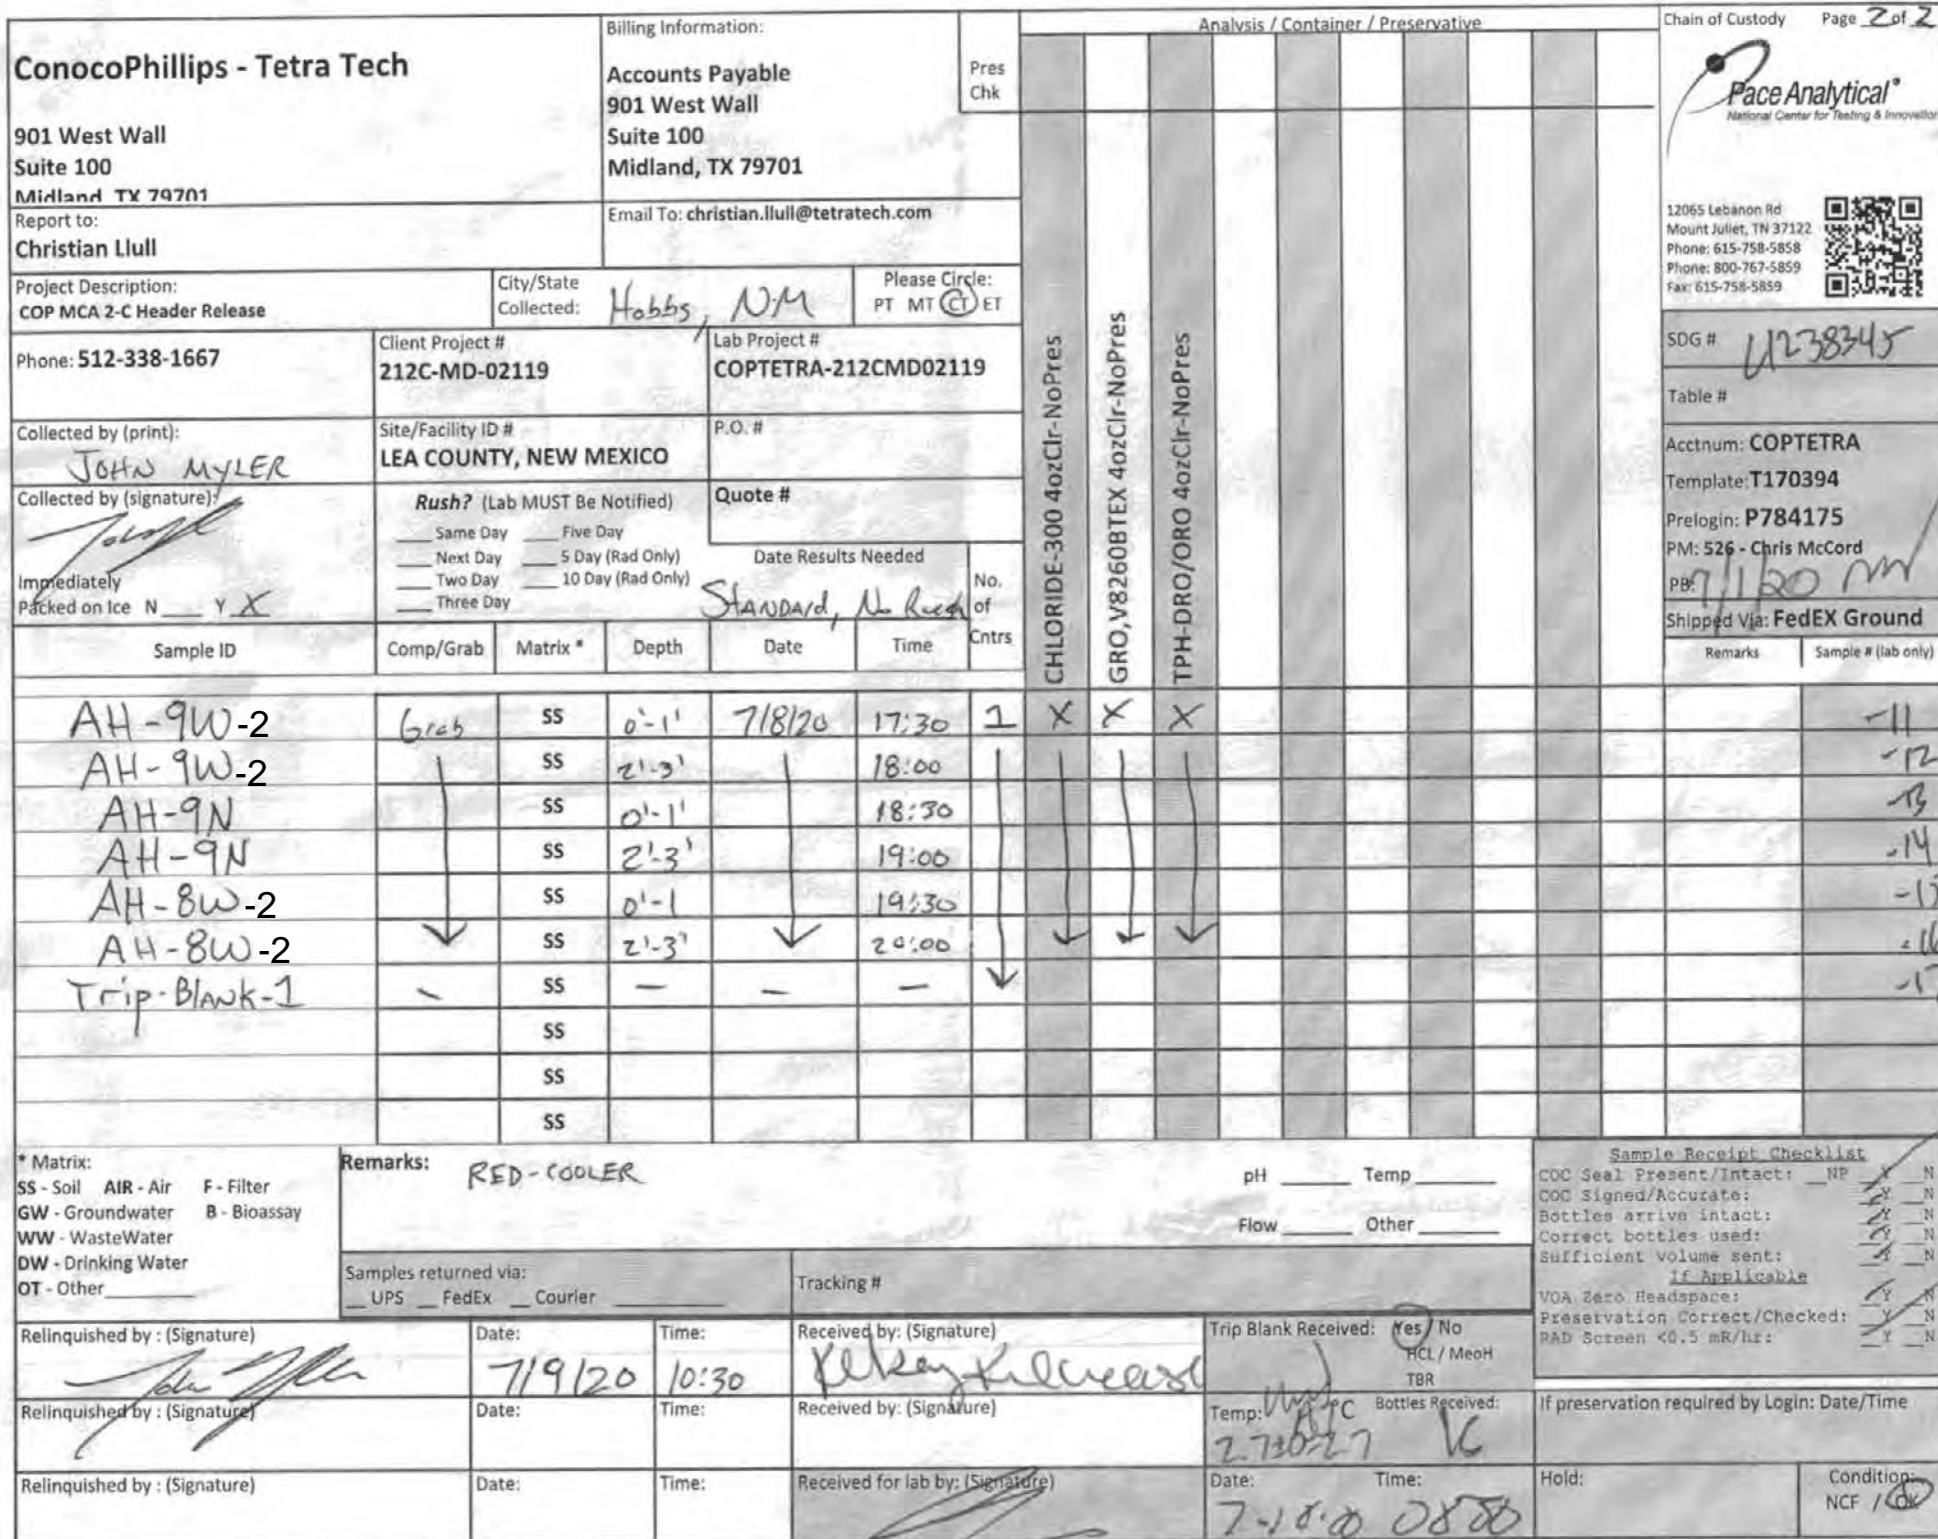 Chain of Custody Page 2 of 2
ConocoPhillips - Tetra Tech
901 West Wall
Suite 100
Midland, TX 79701
Billing Information:
Accounts Payable
901 West Wall
Suite 100
Midland, TX 79701
Pres
Chk
Analysis / Container / Preservative
Pace Analytical®
National Center for Testing & Innovation
12065 Lebanon Rd
Mount Juliet, TN 37122
Phone: 615-758-5858
Phone: 800-767-5859
Fax: 615-758-5859
Report to:
Christian Llull
Email To: christian.llull@tetratech.com
Project Description:
COP MCA 2-C Header Release
City/State
Collected: Hobbs, NM
Please Circle:
PT MT CT ET
Phone: 512-338-1667
Client Project #
212C-MD-02119
Lab Project #
COPTETRA-212CMD02119
Collected by (print):
JOHN MYLER
Site/Facility ID #
LEA COUNTY, NEW MEXICO
P.O. #
Collected by (signature):
Immediately
Packed on Ice N ___ Y X
Rush? (Lab MUST Be Notified)
___ Same Day ___ Five Day
___ Next Day ___ 5 Day (Rad Only)
___ Two Day ___ 10 Day (Rad Only)
___ Three Day
Quote #
Date Results Needed
STANDARD, No Rush
No.
of
Cntrs
CHLORIDE-300 4ozClr-NoPres
GRO,V8260BTEX 4ozClr-NoPres
TPH-DRO/ORO 4ozClr-NoPres
SDG #
Table #
Acctnum: COPTETRA
Template: T170394
Prelogin: P784175
PM: 526 - Chris McCord
PB: 7/1/20
Shipped Via: FedEX Ground
Sample ID Comp/Grab Matrix * Depth Date Time Remarks Sample # (lab only)
AH-9W-2 Grab SS 0'-1' 7/8/20 17:30 1 X X X -11
AH-9W-2 SS 2'-3' 18:00 -12
AH-9N SS 0'-1' 18:30 -13
AH-9N SS 2'-3' 19:00 -14
AH-8W-2 SS 0'-1 19:30 -15
AH-8W-2 SS 2'-3' 20:00 -16
Trip-Blank-1 - SS - - - -17
SS
SS
SS
* Matrix:
SS - Soil AIR - Air F - Filter
GW - Groundwater B - Bioassay
WW - WasteWater
DW - Drinking Water
OT - Other
Remarks: RED-COOLER
pH ___ Temp ___
Flow ___ Other ___
Samples returned via:
__ UPS __ FedEx __ Courier
Tracking #
Sample Receipt Checklist
COC Seal Present/Intact: __NP Y N
COC Signed/Accurate: Y N
Bottles arrive intact: Y N
Correct bottles used: Y N
Sufficient volume sent: Y N
If Applicable
VOA Zero Headspace: Y N
Preservation Correct/Checked: Y N
RAD Screen <0.5 mR/hr: Y N
Relinquished by : (Signature) Date: 7/9/20 Time: 10:30 Received by: (Signature)
Trip Blank Received: Yes / No
HCL / MeoH
TBR
Relinquished by : (Signature) Date: Time: Received by: (Signature)
Temp: °C Bottles Received:
If preservation required by Login: Date/Time
Relinquished by : (Signature) Date: Time: Received for lab by: (Signature)
Date: Time:
Hold:
Condition:
NCF / OK